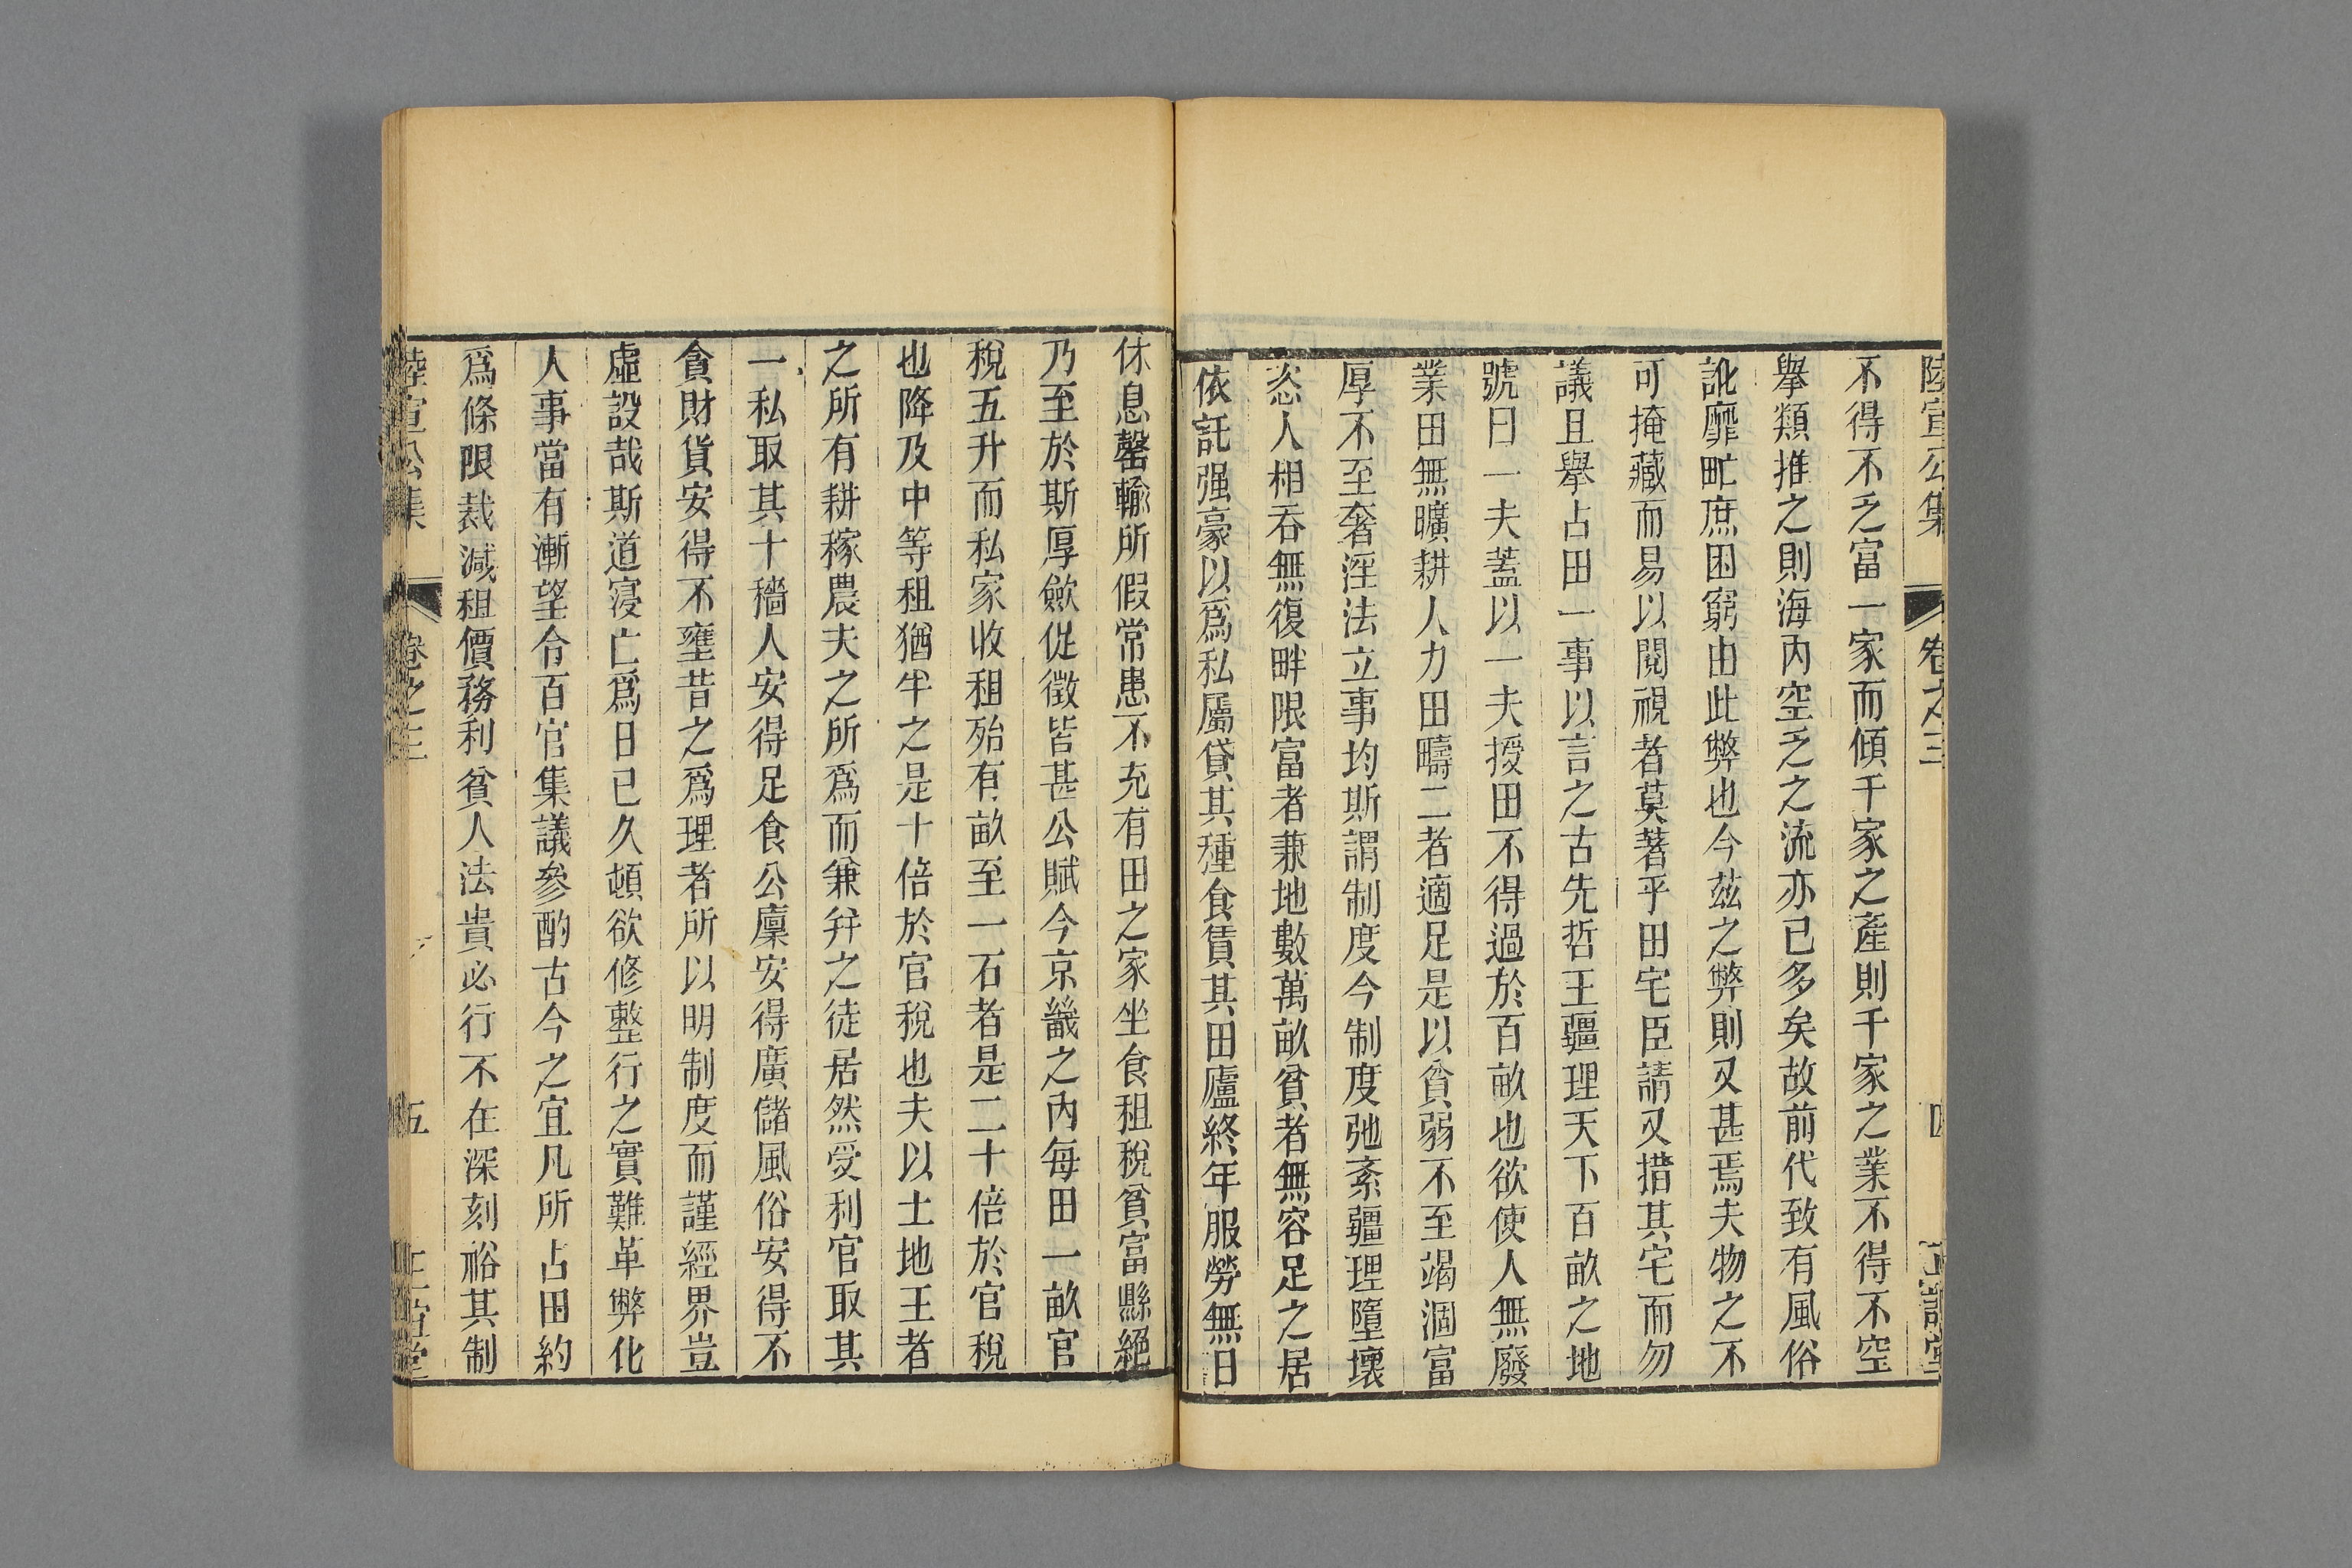 陸宣公集 卷之三 四 正誼堂
不得不乏富一家而傾千家之產則千家之業不得不空
舉類推之則海內空乏之流亦已多矣故前代致有風俗
訛靡甿庶困窮由此弊也今茲之弊則又甚焉夫物之不
可掩藏而易以閱視者莫著乎田宅臣請又措其宅而勿
議且舉占田一事以言之古先哲王疆理天下百畝之地
號曰一夫蓋以一夫授田不得過於百畝也欲使人無廢
業田無曠耕人力田疇二者適足是以貧弱不至竭涸富
厚不至奢淫法立事均斯謂制度今制度弛紊疆理墮壞
恣人相吞無復畔限富者兼地數萬畝貧者無容足之居
依託强豪以爲私屬貸其種食賃其田廬終年服勞無日
休息罄輸所假常患不充有田之家坐食租稅貧富懸絕
乃至於斯厚歛促徵皆甚公賦今京畿之內每田一畝官
稅五升而私家收租殆有畝至一石者是二十倍於官稅
也降及中等租猶半之是十倍於官稅也夫以土地王者
之所有耕稼農夫之所爲而兼并之徒居然受利官取其
一私取其十穡人安得足食公廩安得廣儲風俗安得不
貪財貨安得不壅昔之爲理者所以明制度而謹經界豈
虛設哉斯道寖亡爲日已久頓欲修整行之實難革弊化
人事當有漸望令百官集議參酌古今之宜凡所占田約
爲條限裁減租價務利貧人法貴必行不在深刻裕其制
陸宣公集 卷之三 五 正誼堂